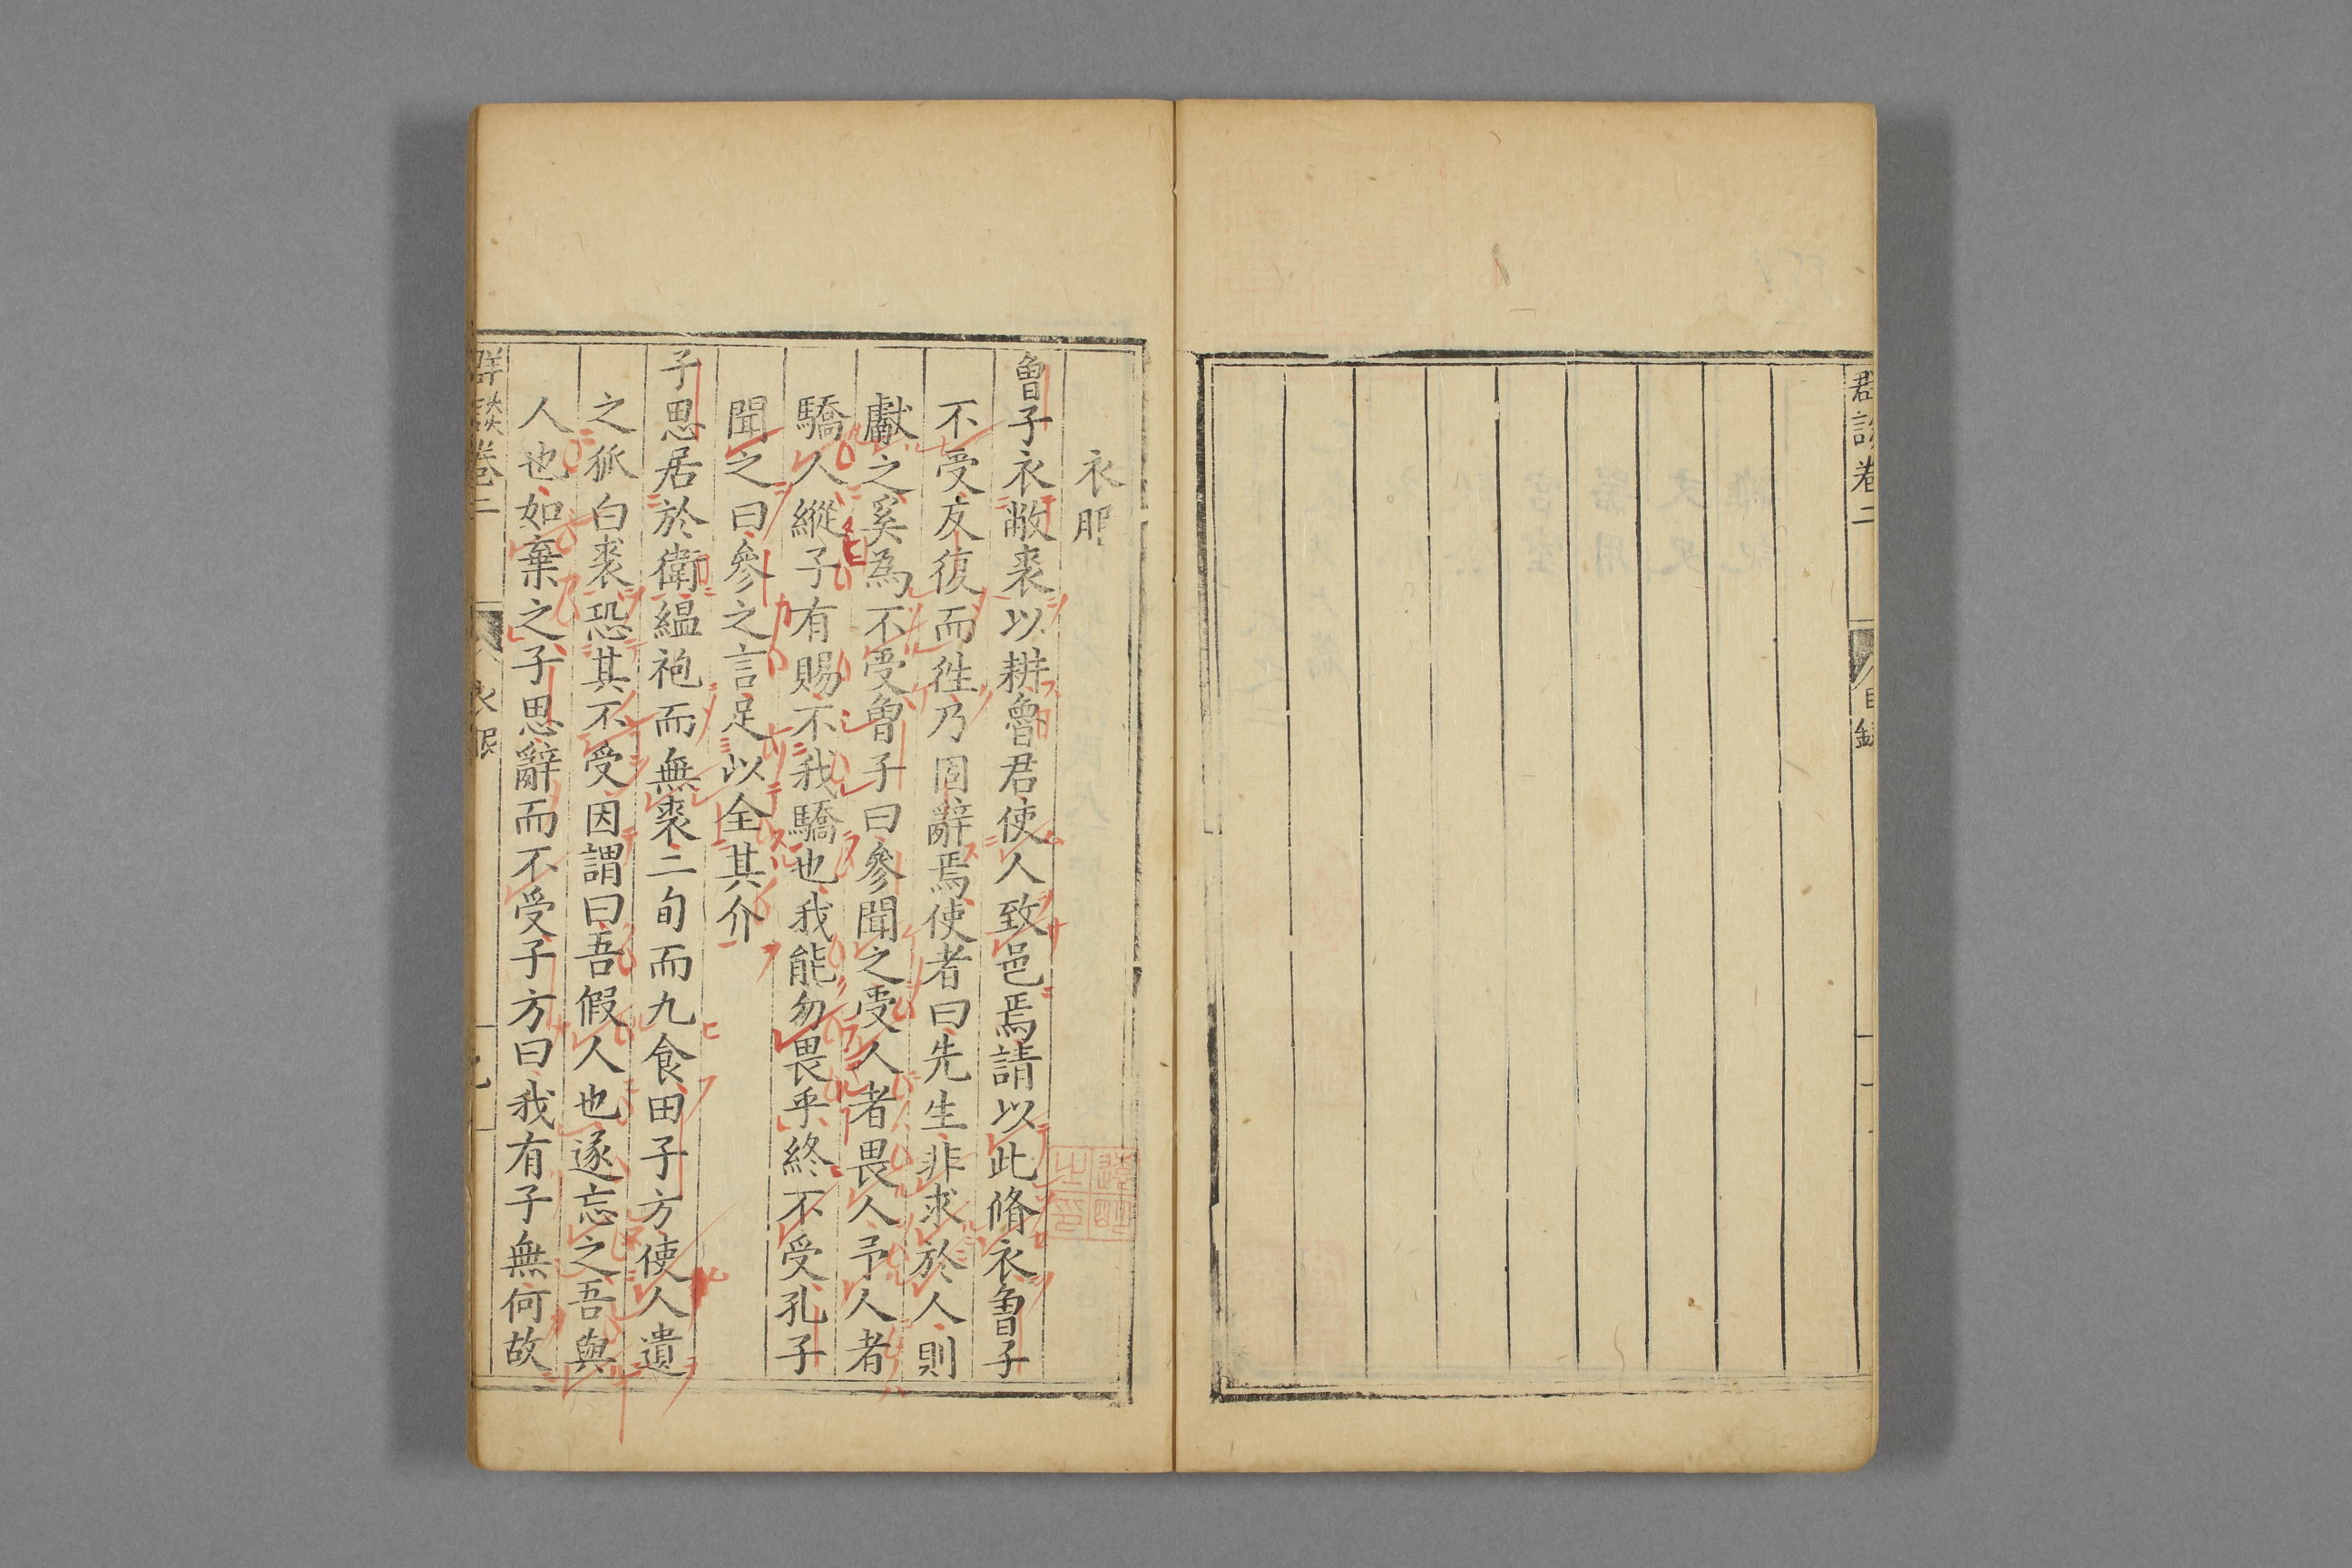 群談卷二
目錄
一
衣服
曾子衣敝裘以耕魯君使人致邑焉請以此脩衣曾子
不受反復而徃乃固辭焉使者曰先生非求於人則
獻之奚為不受曾子曰參聞之受人者畏人予人者
驕人縱子有賜不我驕也我能勿畏乎終不受孔子
聞之曰參之言足以全其介
子思居於衛緼袍而無裘二旬而九食田子方使人遺
之狐白裘恐其不受因謂曰吾假人也遂忘之吾與
人也如棄之子思辭而不受子方曰我有子無何故
群談卷二
衣服